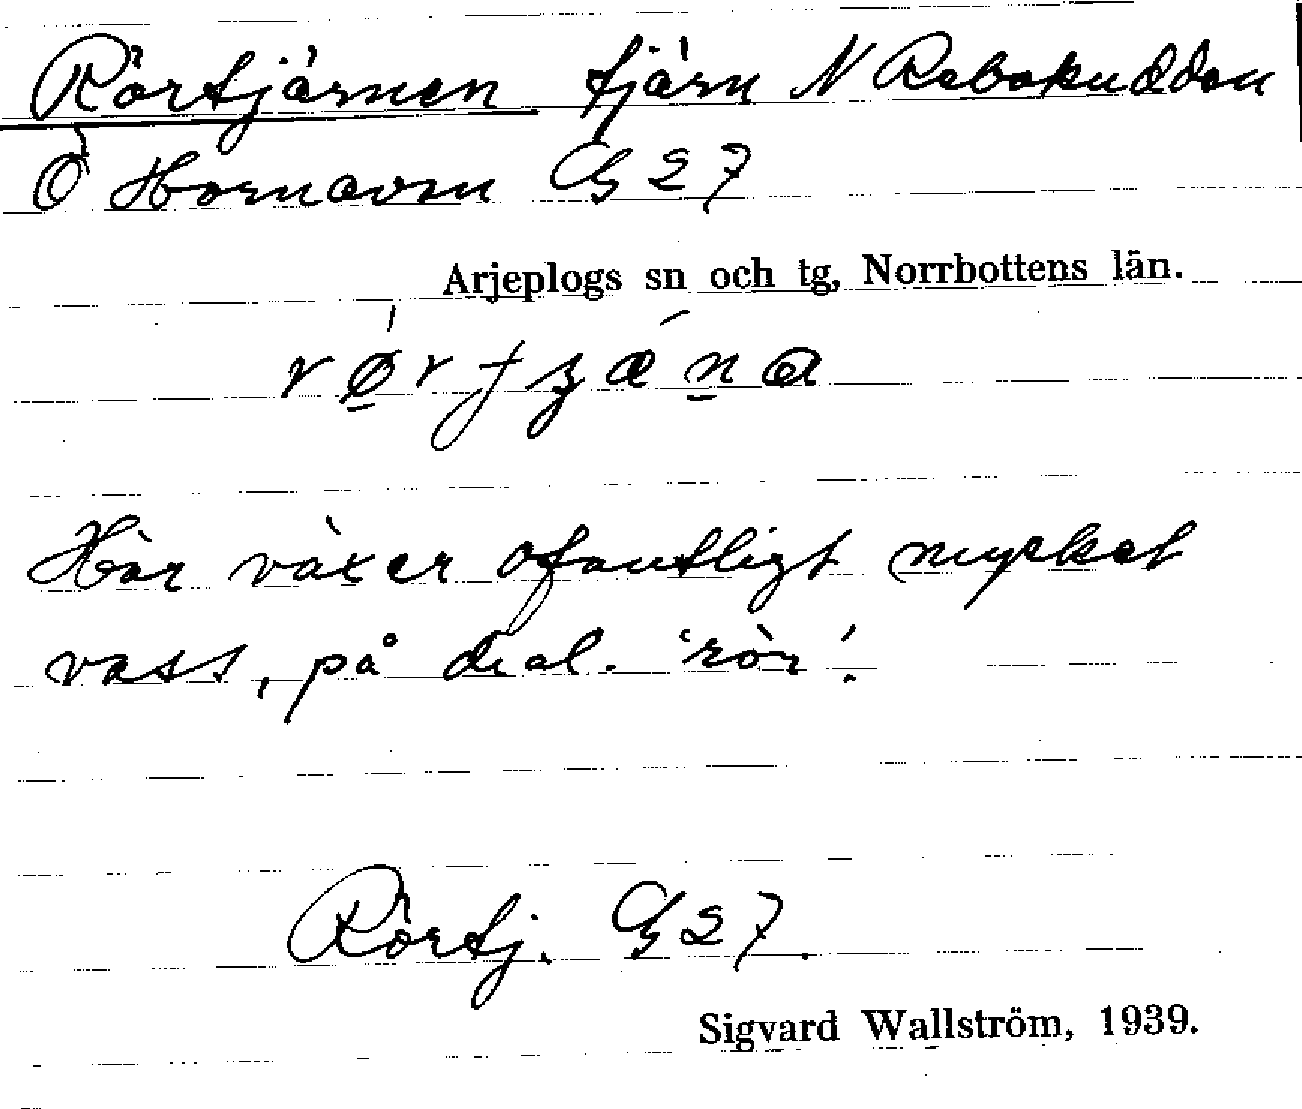 Rörtjärnen tjärn N Rebakudden
Ö Hornavan G 27
Arjeplogs sn och tg, Norrbottens län.
Här växer ofantligt mycket
vass, på dial. 'rör'.
Rörtj. G 27.
Sigvard Wallström, 1939.